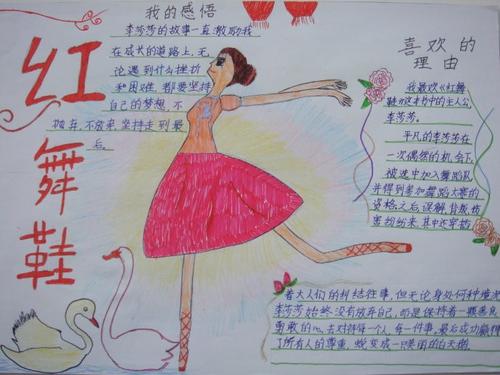 红舞鞋
我的感悟
李莎莎的故事一直激励我
在成长的道路上，无
论遇到什么挫折
和困难，都要坚持
自己的梦想，不
抛弃，不放弃，坚持走到最
后。
喜欢的
理由
我最欢《红舞
鞋》这本书中的主人公
李莎莎。
平凡的李莎莎在
一次偶然的机会下，
被选中加入舞蹈队
并得到参加舞蹈大赛的
资格，之后，误解，背叛，伤
害纷纷来，其中还穿插
着大人们的纠结往事，但无论身处何种境况
李莎莎始终没有放弃自己，而是保持着一颗善良
勇敢的心，去对待每一个人，每一件事，最后成功赢得
了所有人的尊重，蜕变成一只美丽的白天鹅。